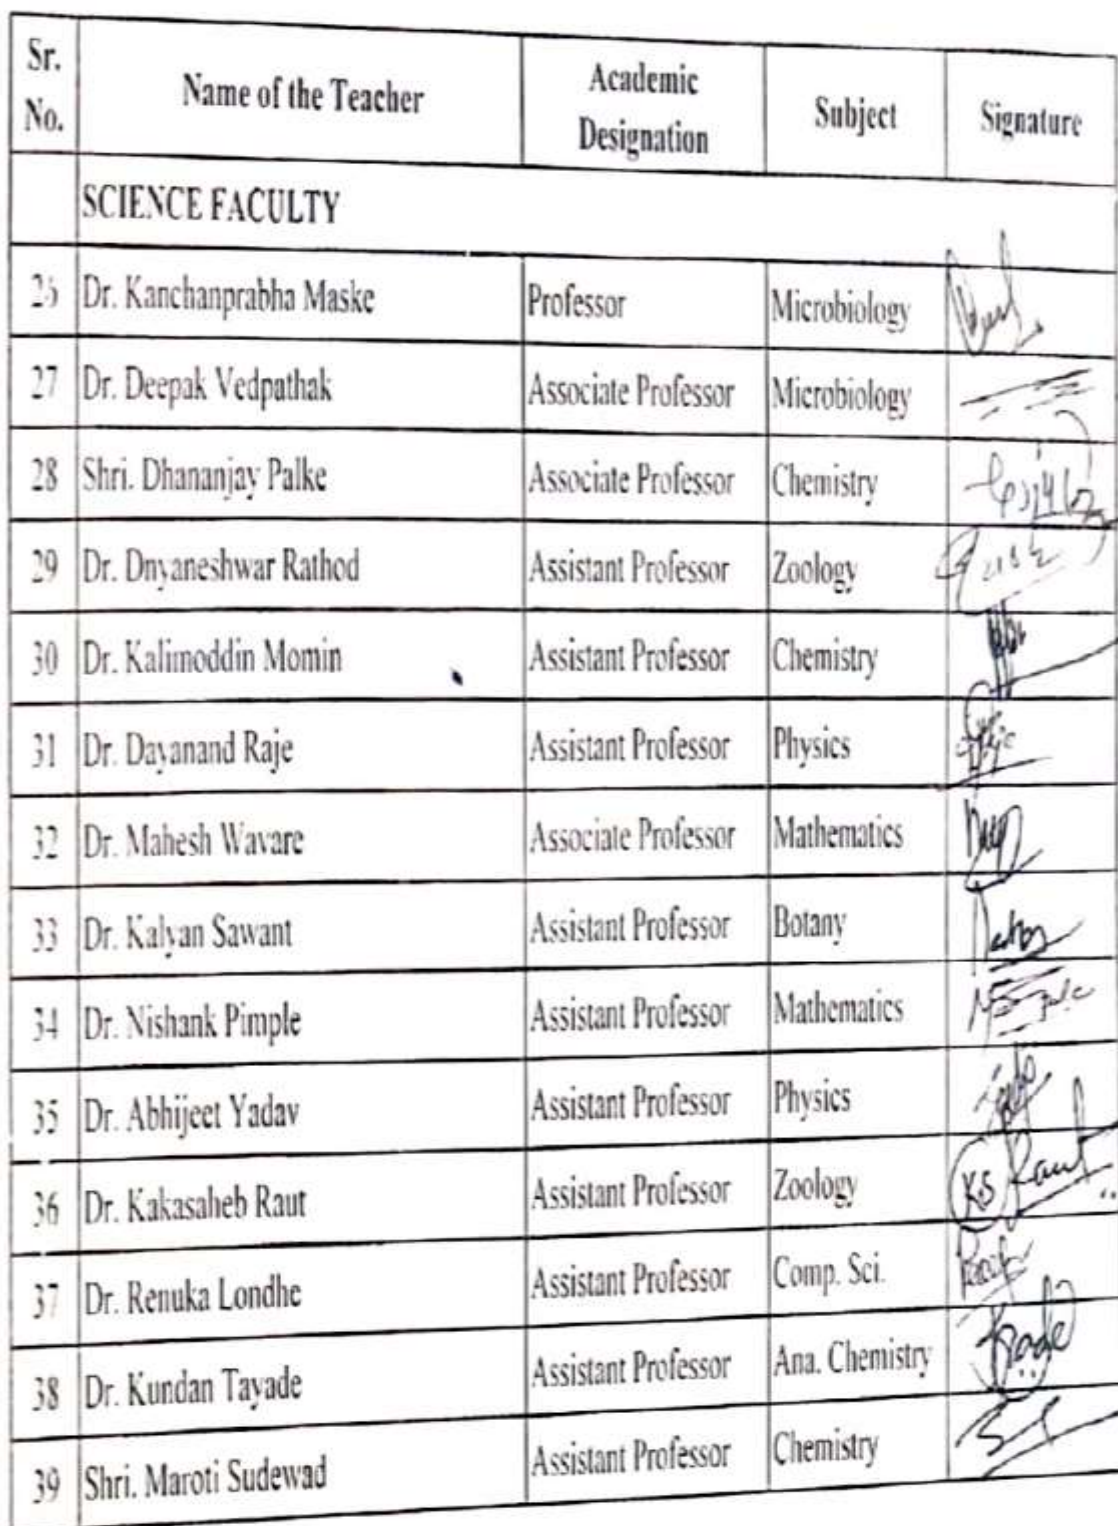 Sr. No. Name of the Teacher Academic Designation Subject Signature
SCIENCE FACULTY
26 Dr. Kanchanprabha Maske Professor Microbiology
27 Dr. Deepak Vedpathak Associate Professor Microbiology
28 Shri. Dhananjay Palke Associate Professor Chemistry
29 Dr. Dnyaneshwar Rathod Assistant Professor Zoology
30 Dr. Kalimoddin Momin Assistant Professor Chemistry
31 Dr. Dayanand Raje Assistant Professor Physics
32 Dr. Mahesh Wavare Associate Professor Mathematics
33 Dr. Kalyan Sawant Assistant Professor Botany
34 Dr. Nishank Pimple Assistant Professor Mathematics
35 Dr. Abhijeet Yadav Assistant Professor Physics
36 Dr. Kakasaheb Raut Assistant Professor Zoology K.S Raut
37 Dr. Renuka Londhe Assistant Professor Comp. Sci.
38 Dr. Kundan Tayade Assistant Professor Ana. Chemistry
39 Shri. Maroti Sudewad Assistant Professor Chemistry